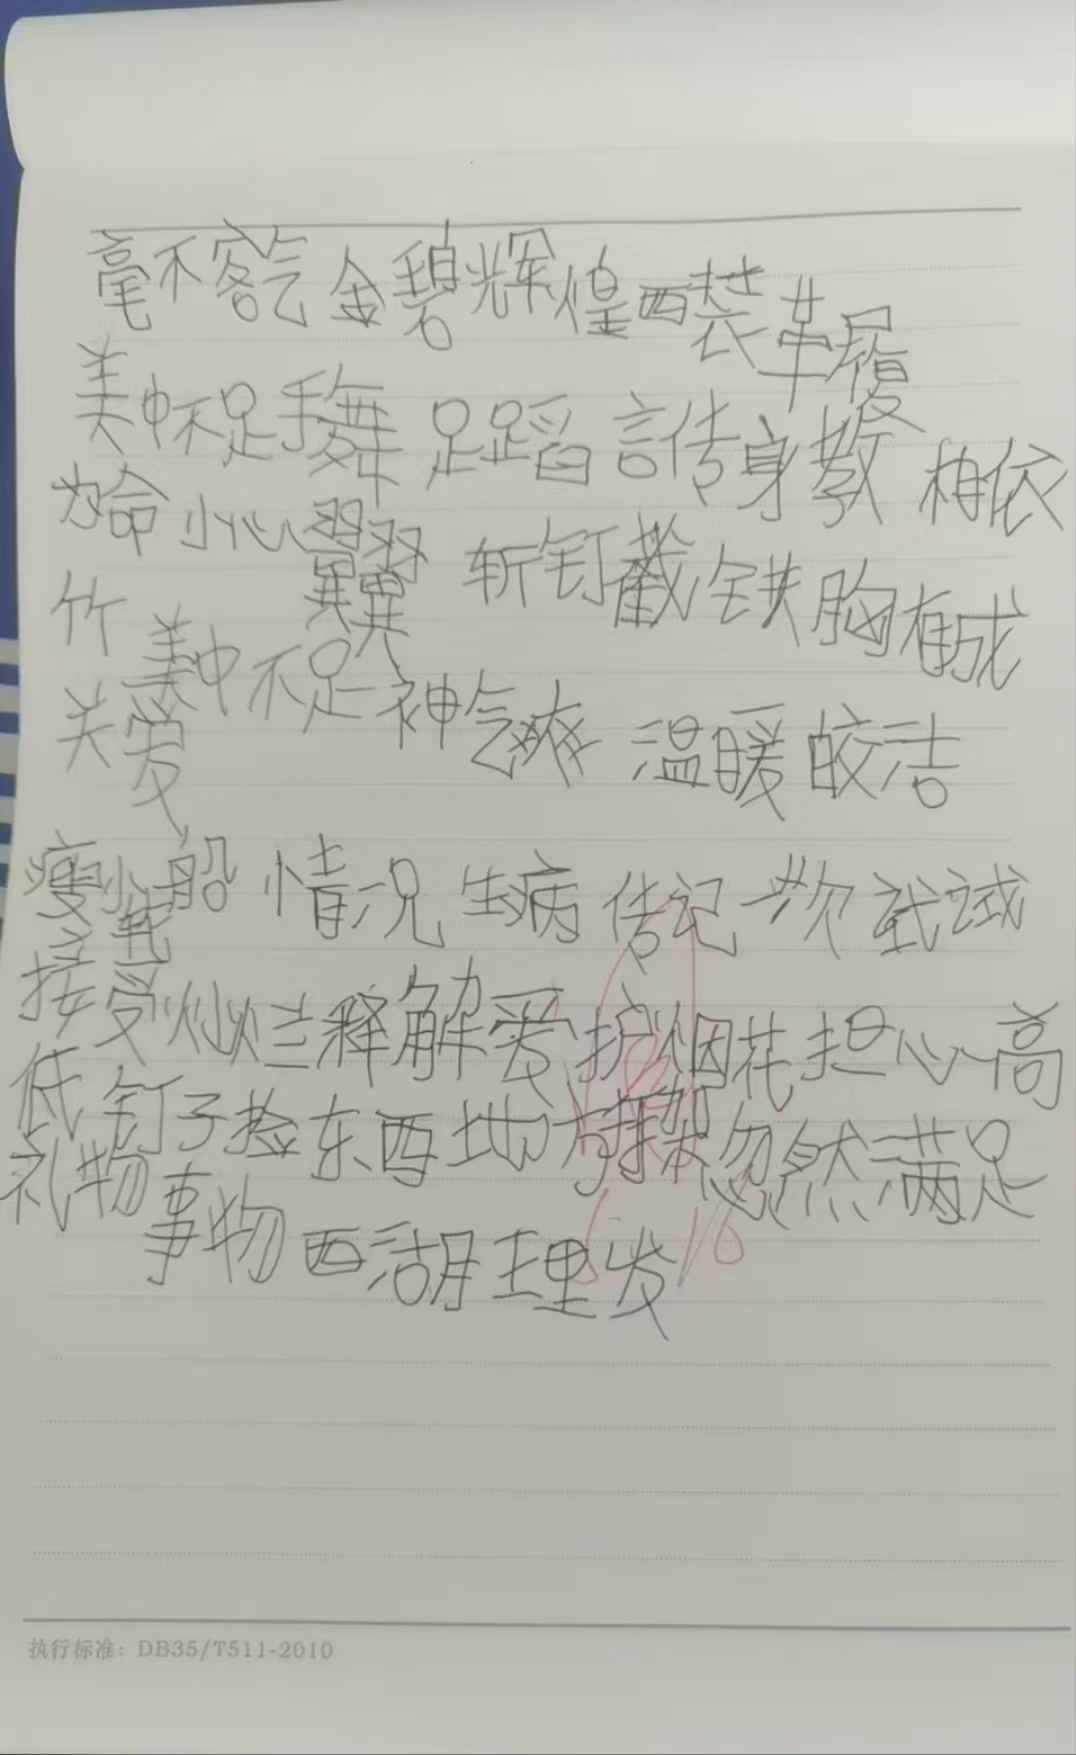 毫不客气 金碧辉煌 西装革履
美中不足 手舞足蹈 言传身教 相依
为命 小心翼翼 斩钉截铁 胸有成
竹 美中不足 神气爽 温暖 皎洁
关爱
瘦小 船 情况 生病 传记 次 武 试
接受 灿烂 释 解 爱护 烟花 担心 高
低 钉子 捡东西 地方 忽然 满足
礼物 事物 西湖 理发
6 16
执行标准：DB35/T511-2010